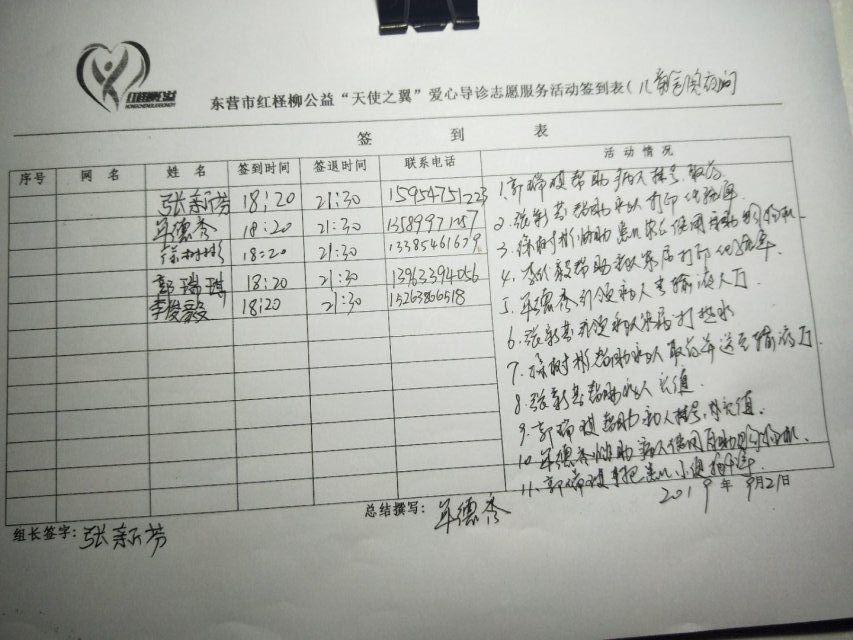 东营市红柽柳公益“天使之翼”爱心导诊志愿服务活动签到表(儿
签 到 表
序号 网 名 姓 名 签到时间 签退时间 联系电话 活 动 情 况
张新芳 18:20 21:30 15954751223
单德秀 18:20 21:30 13589971257
徐树彬 18:20 21:30 13385461679
郭瑞琪 18:20 21:30 13963394056
李俊毅 18:20 21:30 15263866518
1.郭瑞琪帮助病人挂号、取药
2.张新芳帮助病人打印化验单
3.徐树彬协助患儿家长使用自助购物机
4.李俊毅帮助病人家属打印化验单
5.单德秀引领病人去输液大厅
6.张新芳引领病人家属打热水
7.徐树彬帮助病人取药并送至输液厅
8.张新芳帮助病人充值
9.郭瑞琪帮助病人挂号、充值
10.单德秀协助病人使用自助购物机
11.郭瑞琪 患儿小便
2019年9月21日
组长签字:张新芳
总结撰写:单德秀